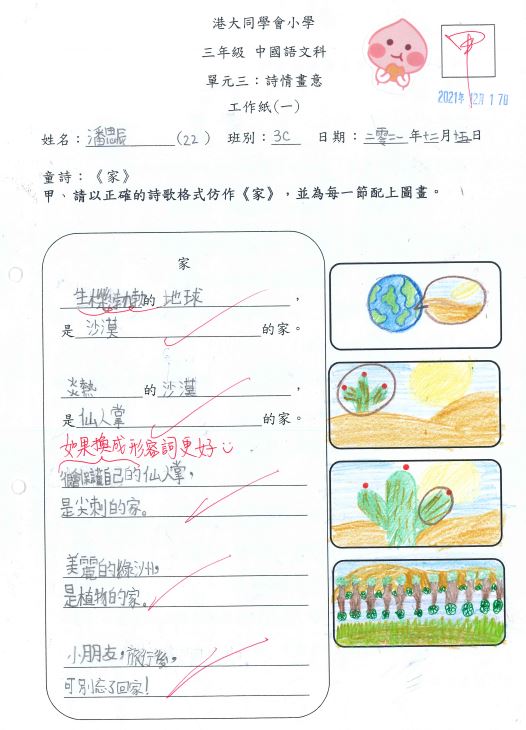 港大同學會小學
三年級 中國語文科
單元三：詩情畫意
工作紙(一)
甲
2021年12月17日
姓名：潘 (22) 班別：3C 日期：二零二一年十二月十五日
童詩：《家》
甲、請以正確的詩歌格式仿作《家》，並為每一節配上圖畫。
家
生機勃勃的 地球，
是 沙漠 的家。
炎熱 的 沙漠，
是 仙人掌 的家。
如果換成形容詞更好
保護自己的仙人掌，
是尖刺的家。
美麗的綠洲，
是植物的家。
小朋友，旅行後，
可別忘了回家！